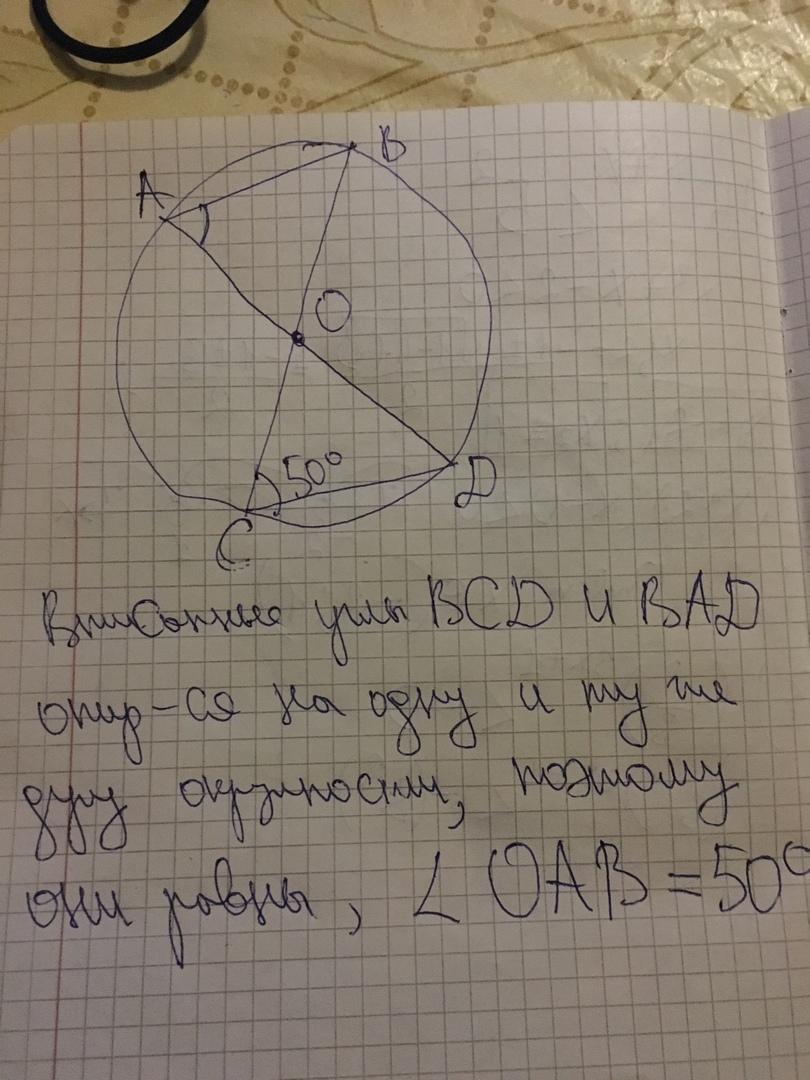 B
A
O
50°
D
C
Вписанные углы BCD и BAD
опир-ся на одну и ту же
дугу окружности, поэтому
они равны, ∠ OAB = 50°